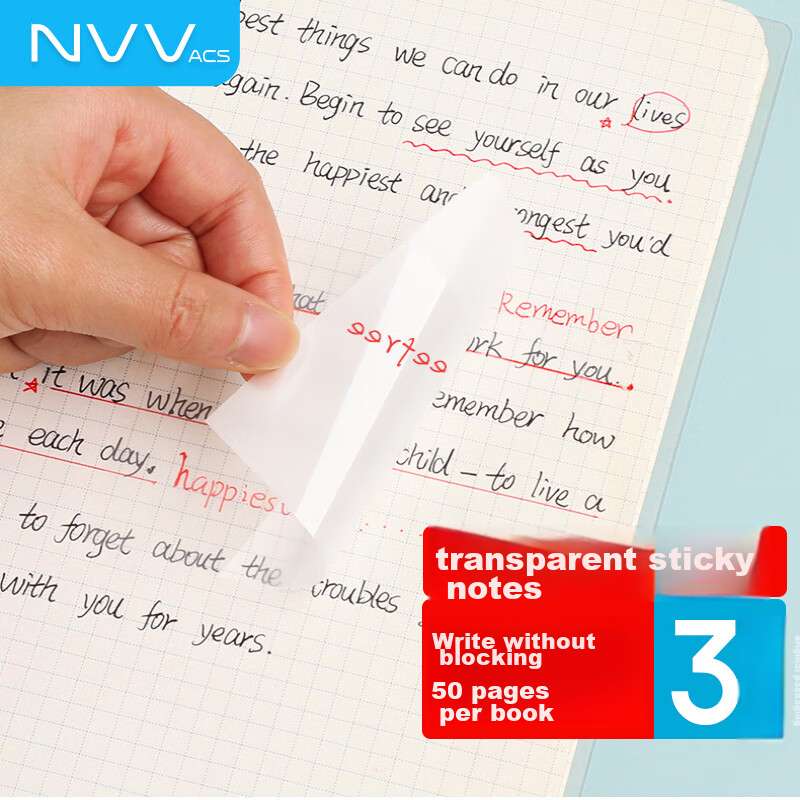 NVV ACS
best things we can do in our lives
again. Begin to see yourself as you
the happiest and ongest you'd
hat Remember
rk for you..
it was when emember how
each day. child - to live a
happies
to forget about the troubles
with you for years.
transparent sticky
notes
Write without
blocking
50 pages
per book
3